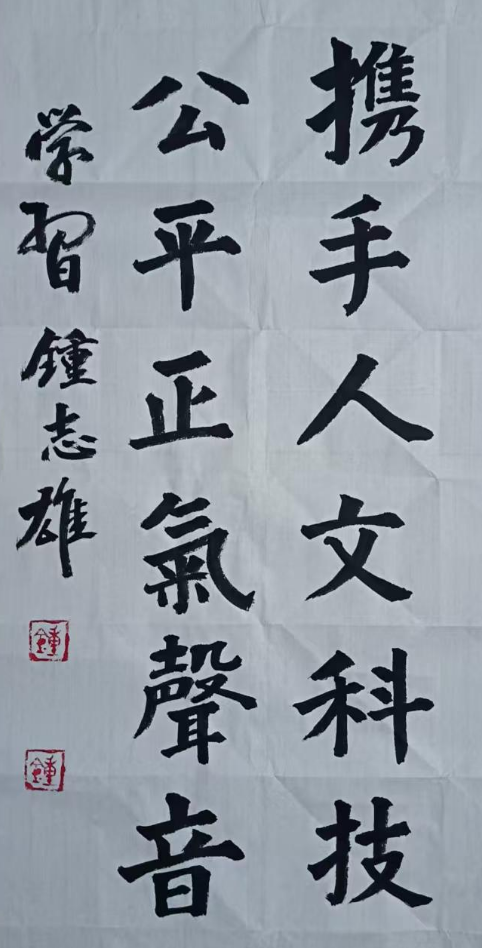 携手人文科技
公平正氣聲音
学習 鍾志雄
鍾
鍾